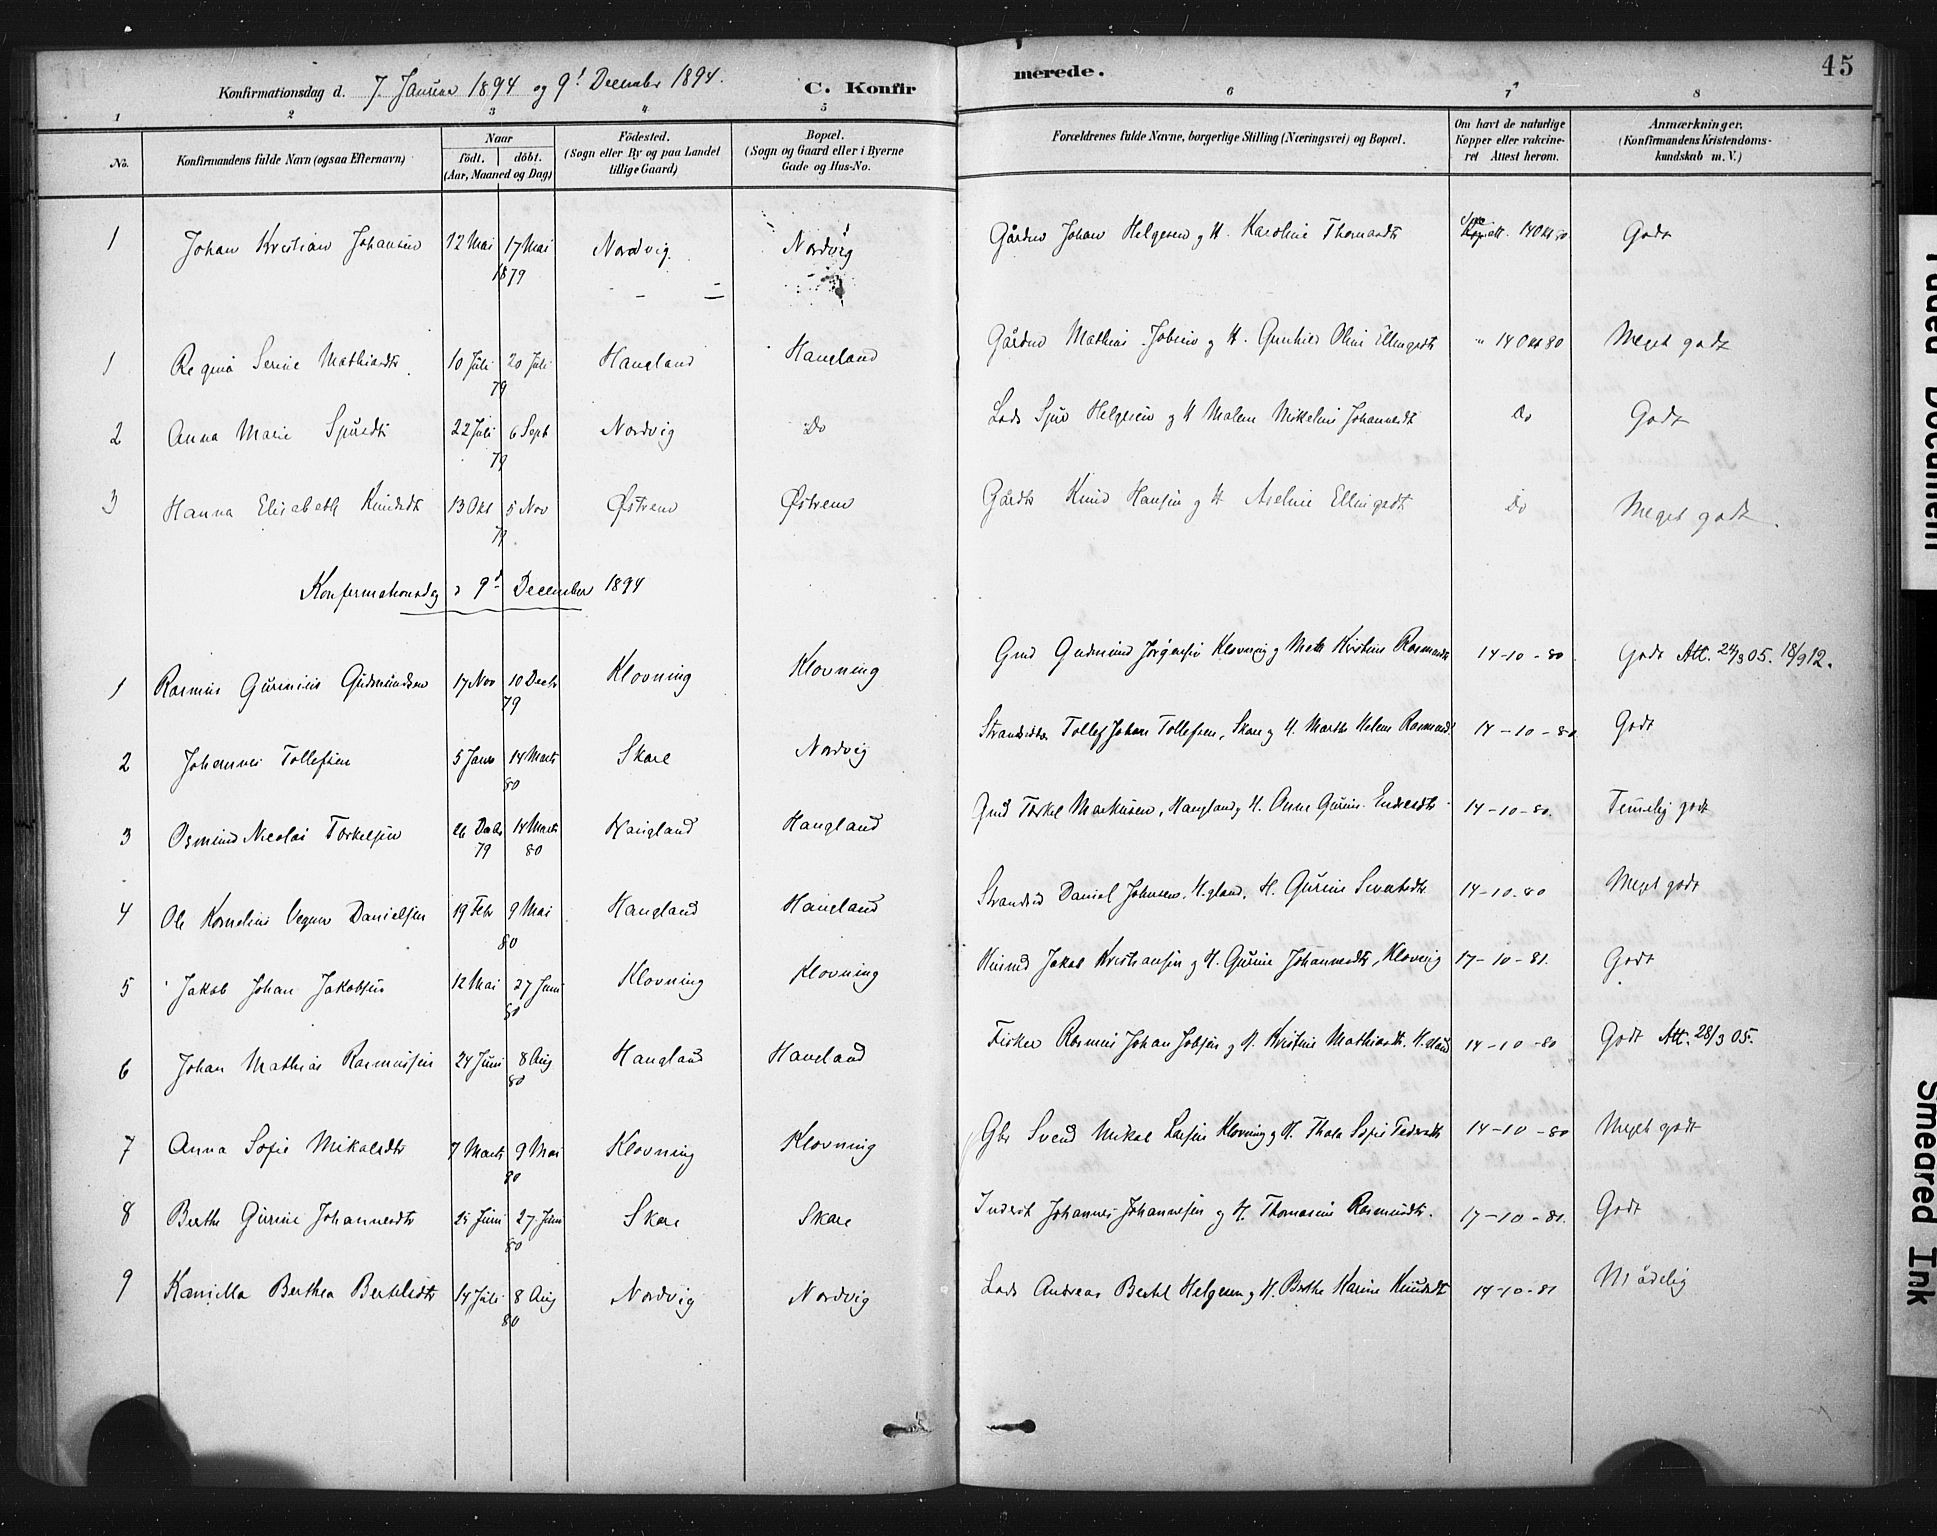 45
Konfirmationsdag d. 7 Januar 1894 og 9d December 1894. C. Konfirmerede.
1 2 3 4 5 6 7 8
No. Konfirmandens fulde Navn (ogsaa Efternavn) Naar født. døbt. (Aar, Maaned og Dag) Fødested. (Sogn eller By og paa Landet tillige Gaard) Bopæl. (Sogn og Gaard eller i Byerne Gade og Hus-No. Forældrenes fulde Navne, borgerlige Stilling (Næringsvei) og Bopæl. Om havt de naturlige Kopper eller vakcineret Attest herom. Anmærkninger. (Konfirmandens Kristendomskundskab m. V.)
1 Johan Kristian Johansen 12 Mai 17 Mai 1879 Nordvig Nordvig Gårdm Johan Helgesen og H. Karoline Thomasdtr 14 Okt 80 Godt
1 Regina Serine Mathiasdtr 10 Juli 20 Juli 79 Haugland Haugland Gårdm Mathias Jobsen og H. Gunhild Oline Ellingsdtr " 14 Okt 80 Meget godt
2 Anna Marie Sjursdtr 22 Juli 6 Sept 79 Nordvig Do Lods Sjur Helgesen og H Malene Mikeline Johannesdtr Do Godt
3 Hanna Elisabeth Knudsdtr 13 Okt 5 Nov 79 Østrem Østrem Knud Hansen og H. Aseline Ellingsdtr Do Meget godt.
Konfirmationsdag d 9d December 1894
1 Rasmus Gurinius Gudmundsen 17 Nov 10 Decbr 79 Klovning Klovning Gmd Gudmund Jørgensen Klovning og Mette Kirstine Rasmusdtr 14-10-80. Godt Att. 24/3 05. 18/9 12.
2 Johannes Tollefsen 5 Janr 14 Marts 80 Skare Nordvig Tollef Johan Tollefsen, Skare og H. Marthe Helene Rasmusd 14-10-80. Godt
3 Osmund Nicolai Torkelsen 26 Decbr 79 14 Marts 80 Haugland Haugland Gmd Torkel Markusen, Haugland og H. Anne Gurine Endresdtr 14-10-80. Temmelig godt
4 Ole Kornelius Vegner Danielsen 19 Febr 9 Mai 80 Haugland Haugland Strandsid Daniel Johnsen, H.gland, H. Gurine 14-10-80 Meget godt
5 Jakob Johan Jakobsen 12 Mai 27 Juni 80 Klovning Klovning Husmd Jakob Kristiansen og H. Gurine Johannesdtr, Klovnig 17-10-81. Godt
6 Johan Mathias Rasmussen 24 Juni 8 Aug 80 Haugland Haugland Fisker Rasmus Johan Jobsen og H. Kristine Mathiasdtr. H.gland 14-10-80 Godt Att. 28/3 05.
7 Anna Sofie Mikalsdtr 7 Marts 9 Mai 80 Klovning Klovning Gbr Svend Mikal Larsen Klovning og H. Thala Sofie 14-10-80 Meget godt
8 Berthe Gurine Johannesdtr 25 Juni 27 Juni 80 Skare Skare Inderst Johannes Johannesen og H. Thomasine Rasmusdtr. 17-10-81. Godt
9 Kamilla Berthea Bertelsdtr 14 Juli 8 Aug 80 Nordvig Nordvig Lods Andreas Bertel Helgesen og H. Berthe Karine Knudsdtr 14-10-81 Mådelig
Faded Document
Smeared Ink